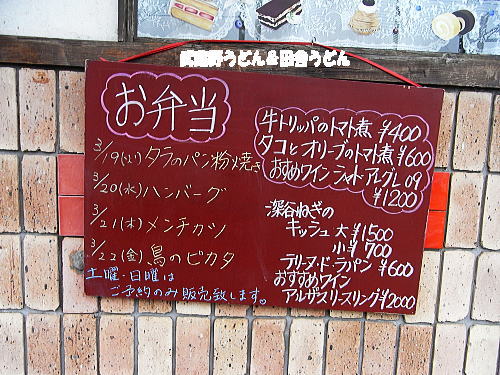 武蔵野うどん&田舎うどん
お弁当
3/19(火)タラのパン粉焼き
3/20(水)ハンバーグ
3/21(木)メンチカツ
3/22(金)鳥のピカタ
土曜、日曜は
ご予約のみ販売致します。
牛トリッパのトマト煮 ¥400
タコとオリーブのトマト煮 ¥600
おすすめワイン シャトー・アグレ 09
¥1200
深谷ねぎの
キッシュ 大¥1500
小¥700
テリーヌ・ド・ラパン ¥600
おすすめワイン
アルザスリースリング¥2000